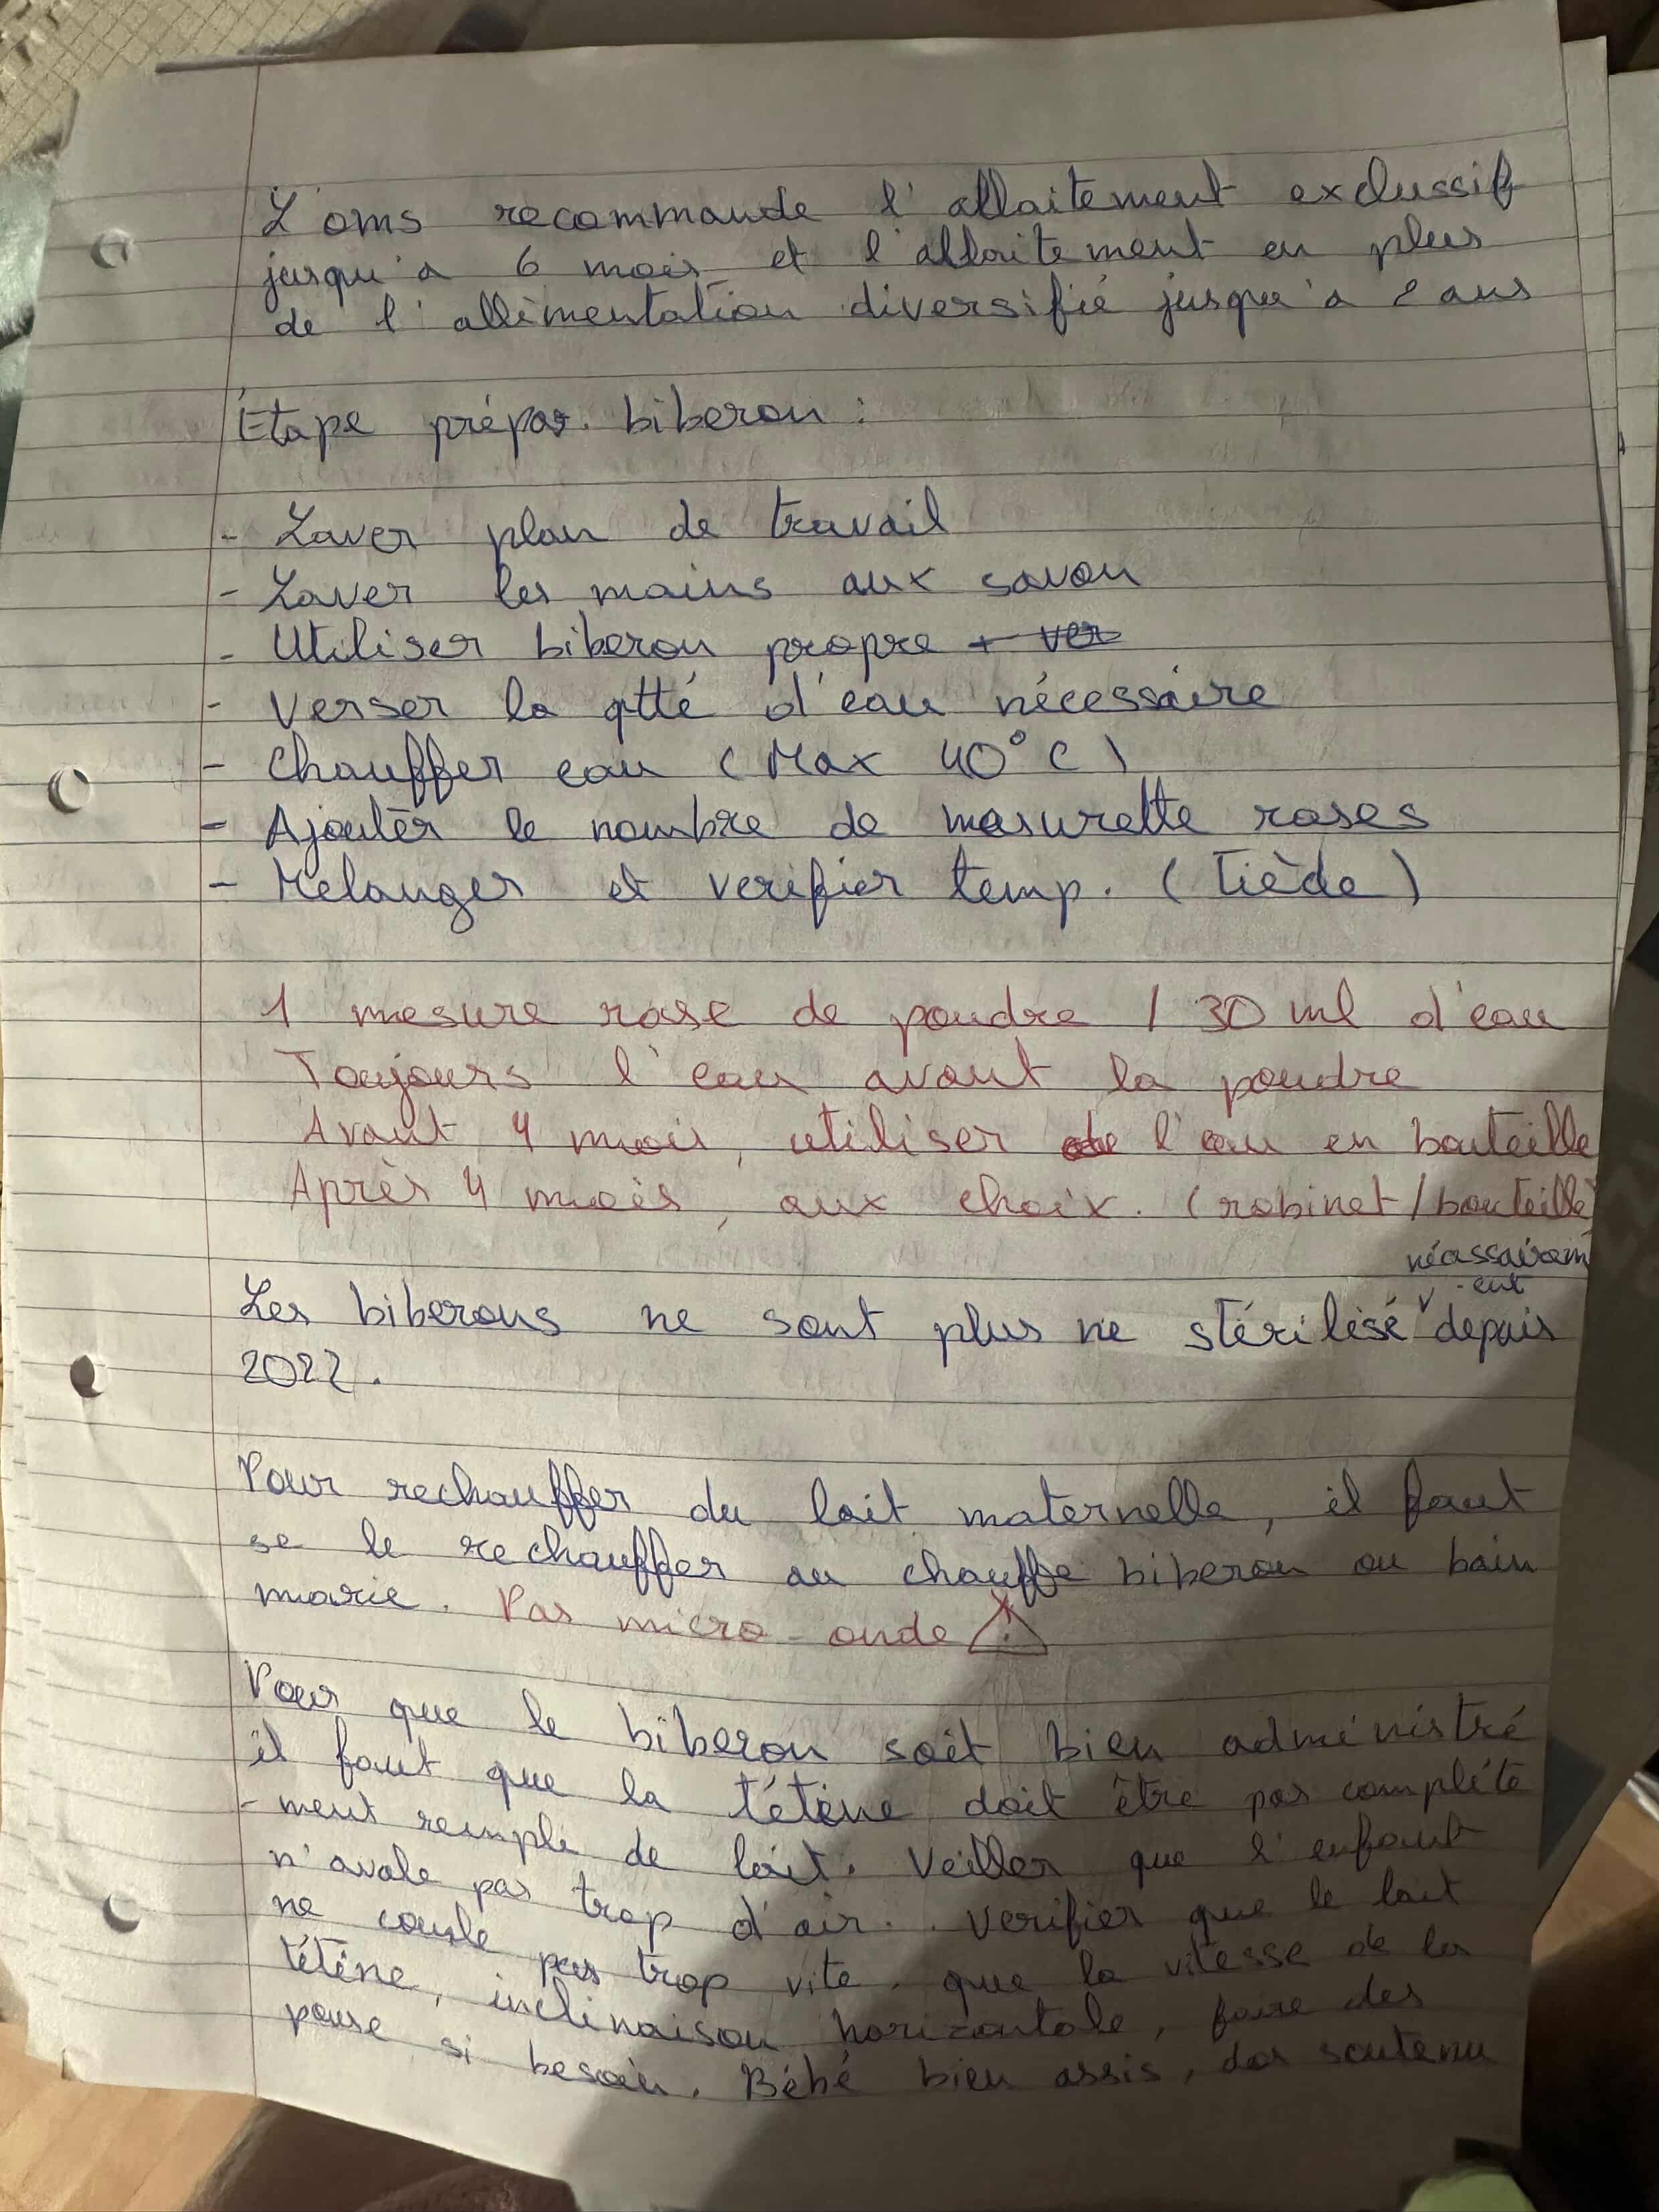 L'oms recommande l'allaitement exclussif
jusqu'a 6 mois et l'allaitement en plus
de l'allimentation diversifié jusqu'a 2 ans
Étape prépar. biberon :
- Laver plan de travail
- Laver les mains aux savon
- Utiliser biberon propre + ver
- Verser la qtté d'eau nécessaire
- Chauffer eau (Max 40°C)
- Ajouter le nombre de mesurette rases
- Melanger et verifier temp. (Tiède)
1 mesure rase de poudre / 30 ml d'eau
Toujours l'eau avant la poudre
Avant 4 mois, utiliser de l'eau en bouteille
Après 4 mois, aux choix. (robinet/bouteille)
néassairem
-ent
Les biberons ne sont plus ne stérilisé depuis
2022.
Pour rechauffer du lait maternelle, il faut
se le rechauffer au chauffe biberon ou bain
marie. Pas micro-onde !
Pour que le biberon soit bien administré
il faut que la tétine doit être pas complète
-ment rempli de lait. Veiller que l'enfant
n'avale pas trop d'air. Verifier que le lait
ne coule pas trop vite. que la vitesse de la
tétine, inclinaison horizontale, faire des
pause si besoin. Bébé bien assis, dos soutenu